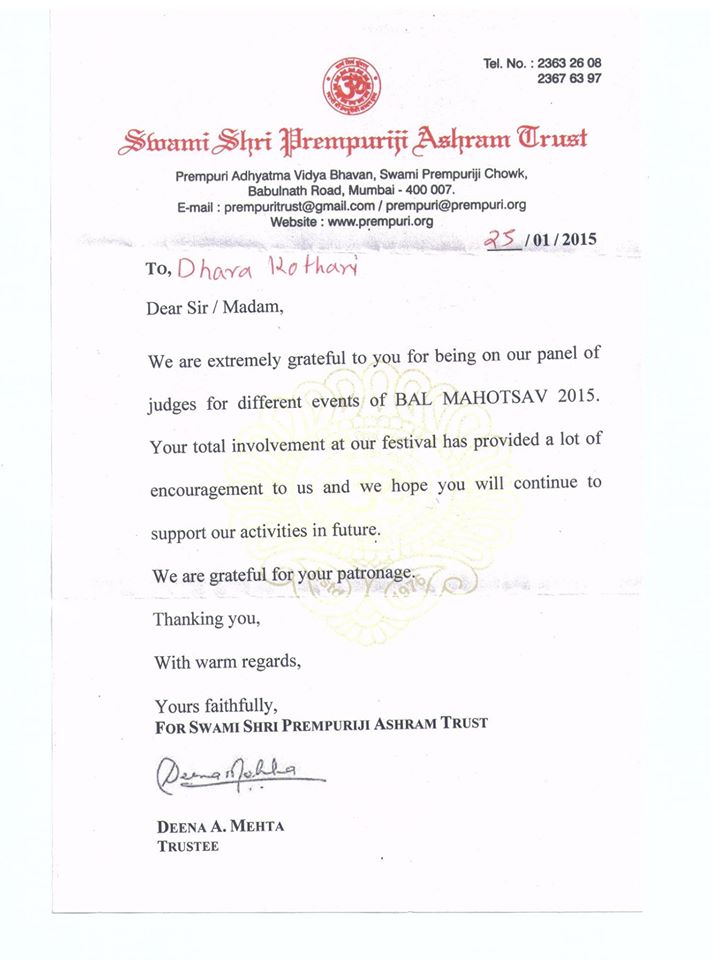 Tel. No. : 2363 26 08
2367 63 97
Swami Shri Prempuriji Ashram Trust
Prempuri Adhyatma Vidya Bhavan, Swami Prempuriji Chowk,
Babulnath Road, Mumbai - 400 007.
E-mail : prempuritrust@gmail.com / prempuri@prempuri.org
Website : www.prempuri.org
25 / 01 / 2015
To, Dhara Kothari
Dear Sir / Madam,
We are extremely grateful to you for being on our panel of
judges for different events of BAL MAHOTSAV 2015.
Your total involvement at our festival has provided a lot of
encouragement to us and we hope you will continue to
support our activities in future.
We are grateful for your patronage.
Thanking you,
With warm regards,
Yours faithfully,
FOR SWAMI SHRI PREMPURIJI ASHRAM TRUST
Deena Mehta
DEENA A. MEHTA
TRUSTEE